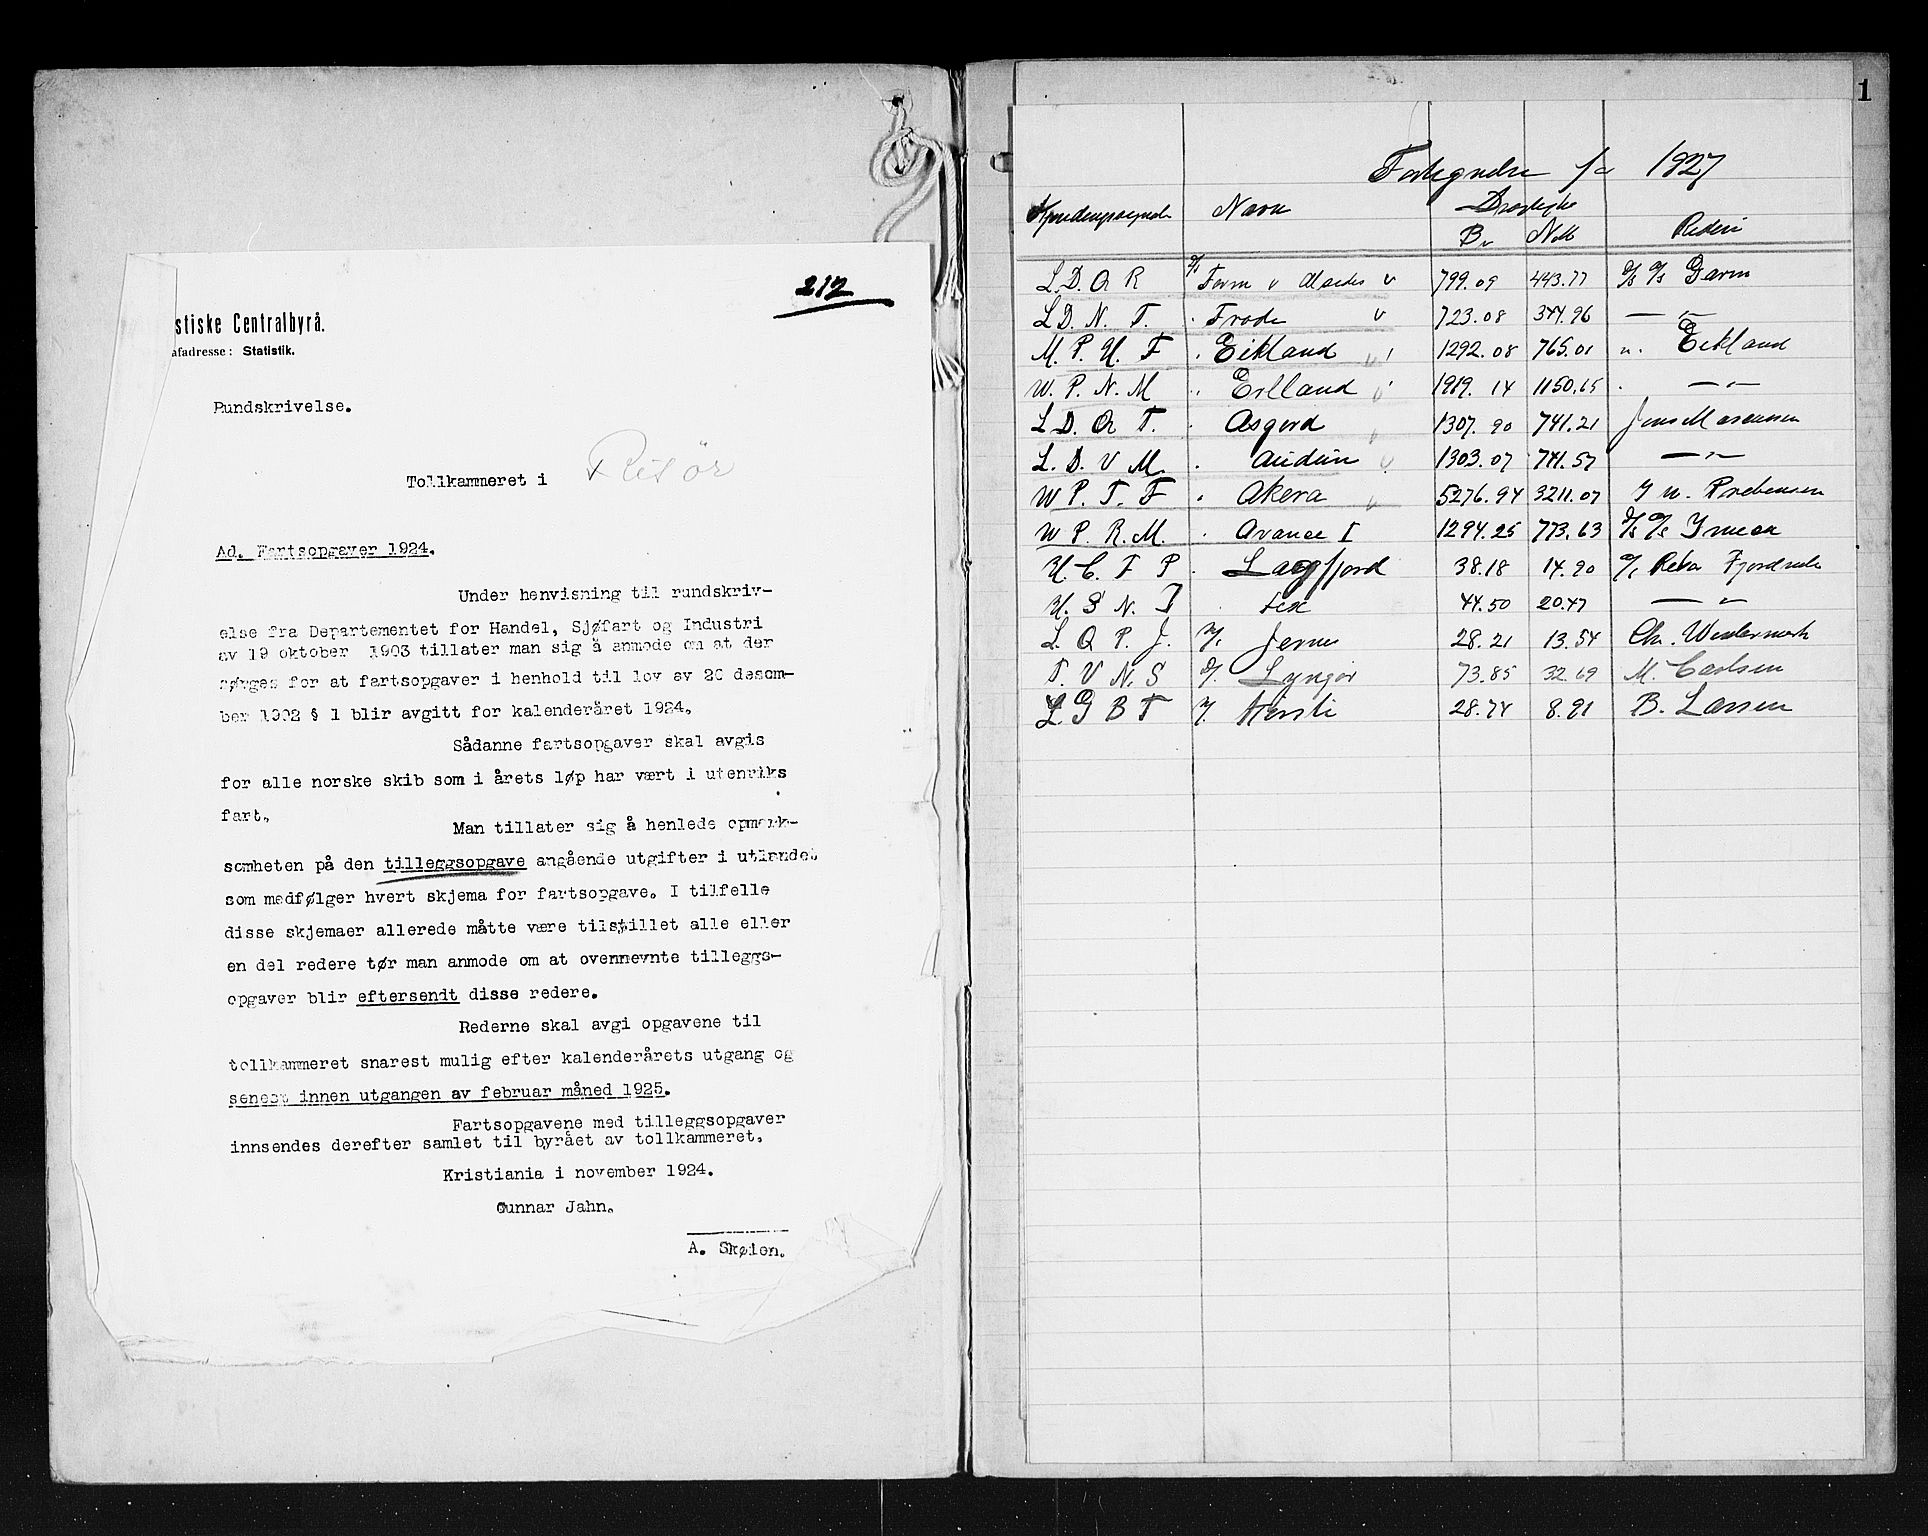 212
stiske Centralbyrå.
afadresse: Statistik.
Rundskrivelse.
Tollkammeret i Risör
Ad. Fartsopgaver 1924.
Under henvisning til rundskriv-
else fra Departementet for Handel, Sjøfart og Industri
av 19 oktober 1903 tillater man sig å anmode om at der
sørges for at fartsopgaver i henhold til lov av 20 desem-
ber 1902 § 1 blir avgitt for kalenderåret 1924.
Sådanne fartsopgaver skal avgis
for alle norske skib som i årets løp har vært i utenriks
fart.
Man tillater sig å henlede opmerk-
somheten på den tilleggsopgave angående utgifter i utlandet
som medfølger hvert skjema for fartsopgave. I tilfelle
disse skjemaer allerede måtte være tilstillet alle eller
en del redere tør man anmode om at ovennevnte tilleggs-
opgaver blir eftersendt disse redere.
Rederne skal avgi opgavene til
tollkammeret snarest mulig efter kalenderårets utgang og
senest innen utgangen av februar måned 1925.
Fartsopgavene med tilleggsopgaver
innsendes derefter samlet til byrået av tollkammeret.
Kristiania i november 1924.
Gunnar Jahn.
A. Skøien.
1
1927
Navn Drægtighe
Br Nett Rederi
L. D. Q R 799.09 443.77 Garm
L D. N. T. Frode 723.08 344.96 — " —
M. P. H. F Eikland 1292.08 765.01 Eikland
W. P. N. M Erlland 1919.14 1150.65 — " —
L D. Q T. Asgerd 1307.90 741.21 Jens Marcussen
L. D. V M. Audun 1303.07 741.57 — " —
W P. T. F Akera 5276.94 3211.07 Prebensen
W P. R. M. Avance I 1294.25 773.63
H. C. F P Lagfjord 38.18 14.90
H. S N. J 44.50 20.47 — " —
L. Q P. J. 28.21 13.54 Chr.
T. V N. S Lyngör 73.85 32.69 M. Carlsen
L G B T Kirsti 28.74 8.91 B. Larsen